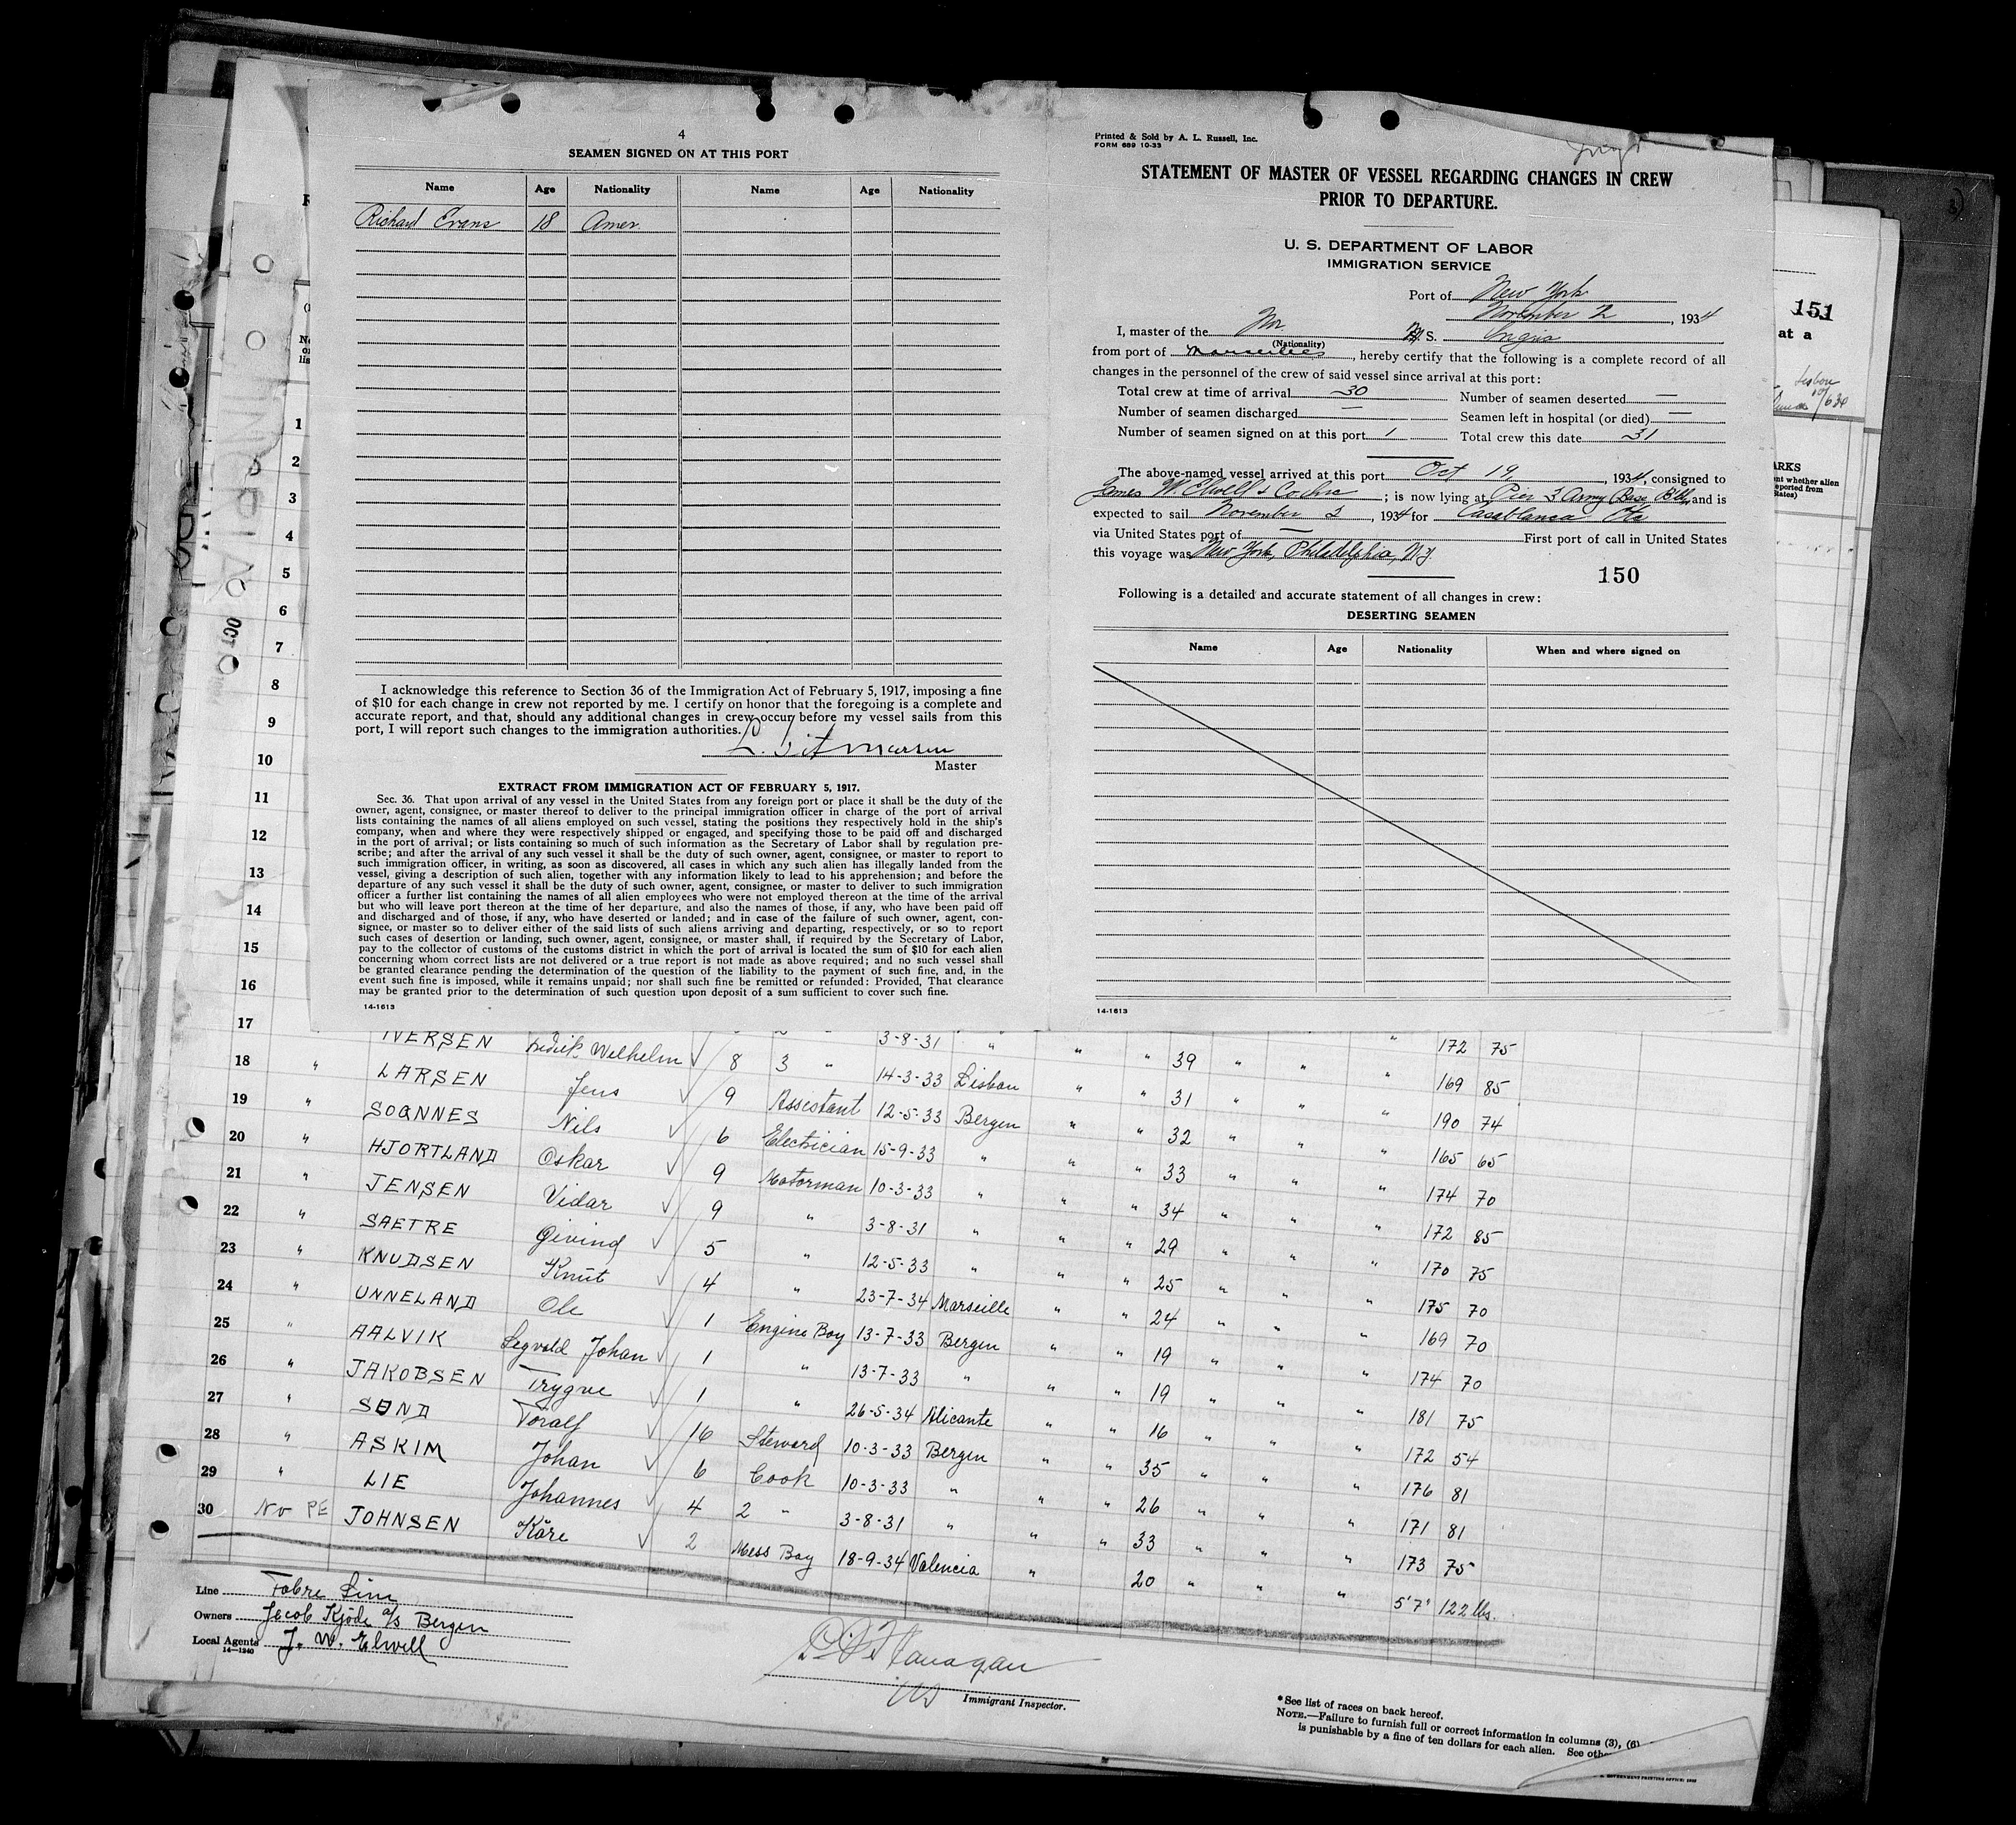 4
SEAMEN SIGNED ON AT THIS PORT
Name Age Nationality Name Age Nationality
Richard Evans 18 Amer.
I acknowledge this reference to Section 36 of the Immigration Act of February 5, 1917, imposing a fine
of $10 for each change in crew not reported by me. I certify on honor that the foregoing is a complete and
accurate report, and that, should any additional changes in crew occur before my vessel sails from this
port, I will report such changes to the immigration authorities.
Master
EXTRACT FROM IMMIGRATION ACT OF FEBRUARY 5, 1917.
Sec. 36. That upon arrival of any vessel in the United States from any foreign port or place it shall be the duty of the
owner, agent, consignee, or master thereof to deliver to the principal immigration officer in charge of the port of arrival
lists containing the names of all aliens employed on such vessel, stating the positions they respectively hold in the ship's
company, when and where they were respectively shipped or engaged, and specifying those to be paid off and discharged
in the port of arrival; or lists containing so much of such information as the Secretary of Labor shall by regulation pre-
scribe; and after the arrival of any such vessel it shall be the duty of such owner, agent, consignee, or master to report to
such immigration officer, in writing, as soon as discovered, all cases in which any such alien has illegally landed from the
vessel, giving a description of such alien, together with any information likely to lead to his apprehension; and before the
departure of any such vessel it shall be the duty of such owner, agent, consignee, or master to deliver to such immigration
officer a further list containing the names of all alien employees who were not employed thereon at the time of the arrival
but who will leave port thereon at the time of her departure, and also the names of those, if any, who have been paid off
and discharged and of those, if any, who have deserted or landed; and in case of the failure of such owner, agent, con-
signee, or master so to deliver either of the said lists of such aliens arriving and departing, respectively, or so to report
such cases of desertion or landing, such owner, agent, consignee, or master shall, if required by the Secretary of Labor,
pay to the collector of customs of the customs district in which the port of arrival is located the sum of $10 for each alien
concerning whom correct lists are not delivered or a true report is not made as above required; and no such vessel shall
be granted clearance pending the determination of the question of the liability to the payment of such fine, and, in the
event such fine is imposed, while it remains unpaid; nor shall such fine be remitted or refunded: Provided, That clearance
may be granted prior to the determination of such question upon deposit of a sum sufficient to cover such fine.
14-1613
Printed & Sold by A. L. Russell, Inc.
FORM 689 10-33
STATEMENT OF MASTER OF VESSEL REGARDING CHANGES IN CREW
PRIOR TO DEPARTURE.
U. S. DEPARTMENT OF LABOR
IMMIGRATION SERVICE
Port of New York
November 2, 1934
I, master of the S.
(Nationality)
from port of Marseilles, hereby certify that the following is a complete record of all
changes in the personnel of the crew of said vessel since arrival at this port:
Total crew at time of arrival 30 Number of seamen deserted —
Number of seamen discharged — Seamen left in hospital (or died) —
Number of seamen signed on at this port 1 Total crew this date 31
The above-named vessel arrived at this port Oct 19, 1934, consigned to
James W. Elwell & Co Inc; is now lying at Pier 3 Army Base Bkln and is
expected to sail November 2, 1934 for Casablanca Etc
via United States port of — First port of call in United States
this voyage was New York, Philadelphia, N.Y.
150
Following is a detailed and accurate statement of all changes in crew:
DESERTING SEAMEN
Name Age Nationality When and where signed on
14-1613
151
at a
Lisbon
ARKS
nt whether alien
eported from
States)
OCT
1
2
3
4
5
6
7
8
9
10
11
12
13
14
15
16
17 IVERSEN Fredrik Wilhelm 8 3 " 3-8-31 " " " 39 " " " 172 75
18 " LARSEN Jens 9 Assistant 14-3-33 Lisbon " " 31 " " " 169 85
19 " SOANNES Nils 6 Electrician 12-5-33 Bergen " " 32 " " " 190 74
20 " HJORTLAND Oskar 9 Motorman 15-9-33 " " " 33 " " " 165 65
21 " JENSEN Vidar 9 " 10-3-33 " " " 34 " " " 174 70
22 " SAETRE Oivind 5 " 3-8-31 " " " 29 " " " 172 85
23 " KNUDSEN Knut 4 " 12-5-33 " " " 25 " " " 170 75
24 " UNNELAND Ole 1 Engine Boy 23-7-34 Marseille " " 24 " " " 175 70
25 " AALVIK Segvald Johan 1 " 13-7-33 Bergen " " 19 " " " 169 70
26 " JAKOBSEN Trygve 1 " 13-7-33 " " " 19 " " " 174 70
27 " SUND Toralf 16 Steward 26-5-34 Alicante " " 16 " " " 181 75
28 " ASKIM Johan 6 Cook 10-3-33 Bergen " " 35 " " " 172 54
29 " LIE Johannes 4 2 " 10-3-33 " " " 26 " " " 176 81
30 No PE JOHNSEN Kåre 2 Mess Boy 3-8-31 " " " 33 " " " 171 81
18-9-34 Valencia " " 20 " " " 173 75
5'7" 122 lbs.
Line Fabre Line
Owners Jacob Kjöde a/s Bergen
Local Agents J. W. Elwell
14—1240
Flanagan
Immigrant Inspector.
*See list of races on back hereof.
NOTE.—Failure to furnish full or correct information in columns (3), (6)
is punishable by a fine of ten dollars for each alien. See othe
GOVERNMENT PRINTING OFFICE: